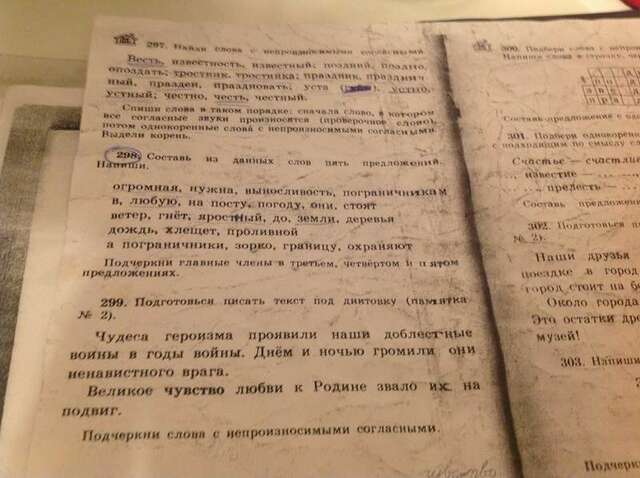 297. Найди слова с непроизносимыми согласными.
Весть, известность, известный; поздний, поздно,
опоздать; тростник, тростинка; праздник, празднич
ный, празден, праздновать; уста устно,
устный; честно, честь, честный.
Спиши слова в таком порядке: сначала слово, в котором
все согласные звуки произносятся (проверочное слово),
потом однокоренные слова с непроизносимыми согласными.
Выдели корень.
298. Составь из данных слов пять предложений.
Напиши.
огромная, нужна, выносливость, пограничникам
в, любую, на посту, погоду, они, стоят
ветер, гнёт, яростный, до, земли, деревья
дождь, хлещет, проливной
а пограничники, зорко, границу, охраняют
Подчеркни главные члены в третьем, четвёртом и пятом
предложениях.
299. Подготовься писать текст под диктовку (памятка
№ 2).
Чудеса героизма проявили наши доблестные
воины в годы войны. Днём и ночью громили они
ненавистного врага.
Великое чувство любви к Родине звало их на
подвиг.
Подчеркни слова с непроизносимыми согласными.
300. Подбери слова с
Напиши слова в строчку,
Составь предложения с
301. Подбери
с подходящим по смыслу
Счастье — счастли
... известие —
... прелесть —
Составь предложени
302. Подготовься п
№ 2).
Наши друзья
поездке в город
город стоит на б
Около города
Это остатки
музей!
303. Напиши
Подчерк